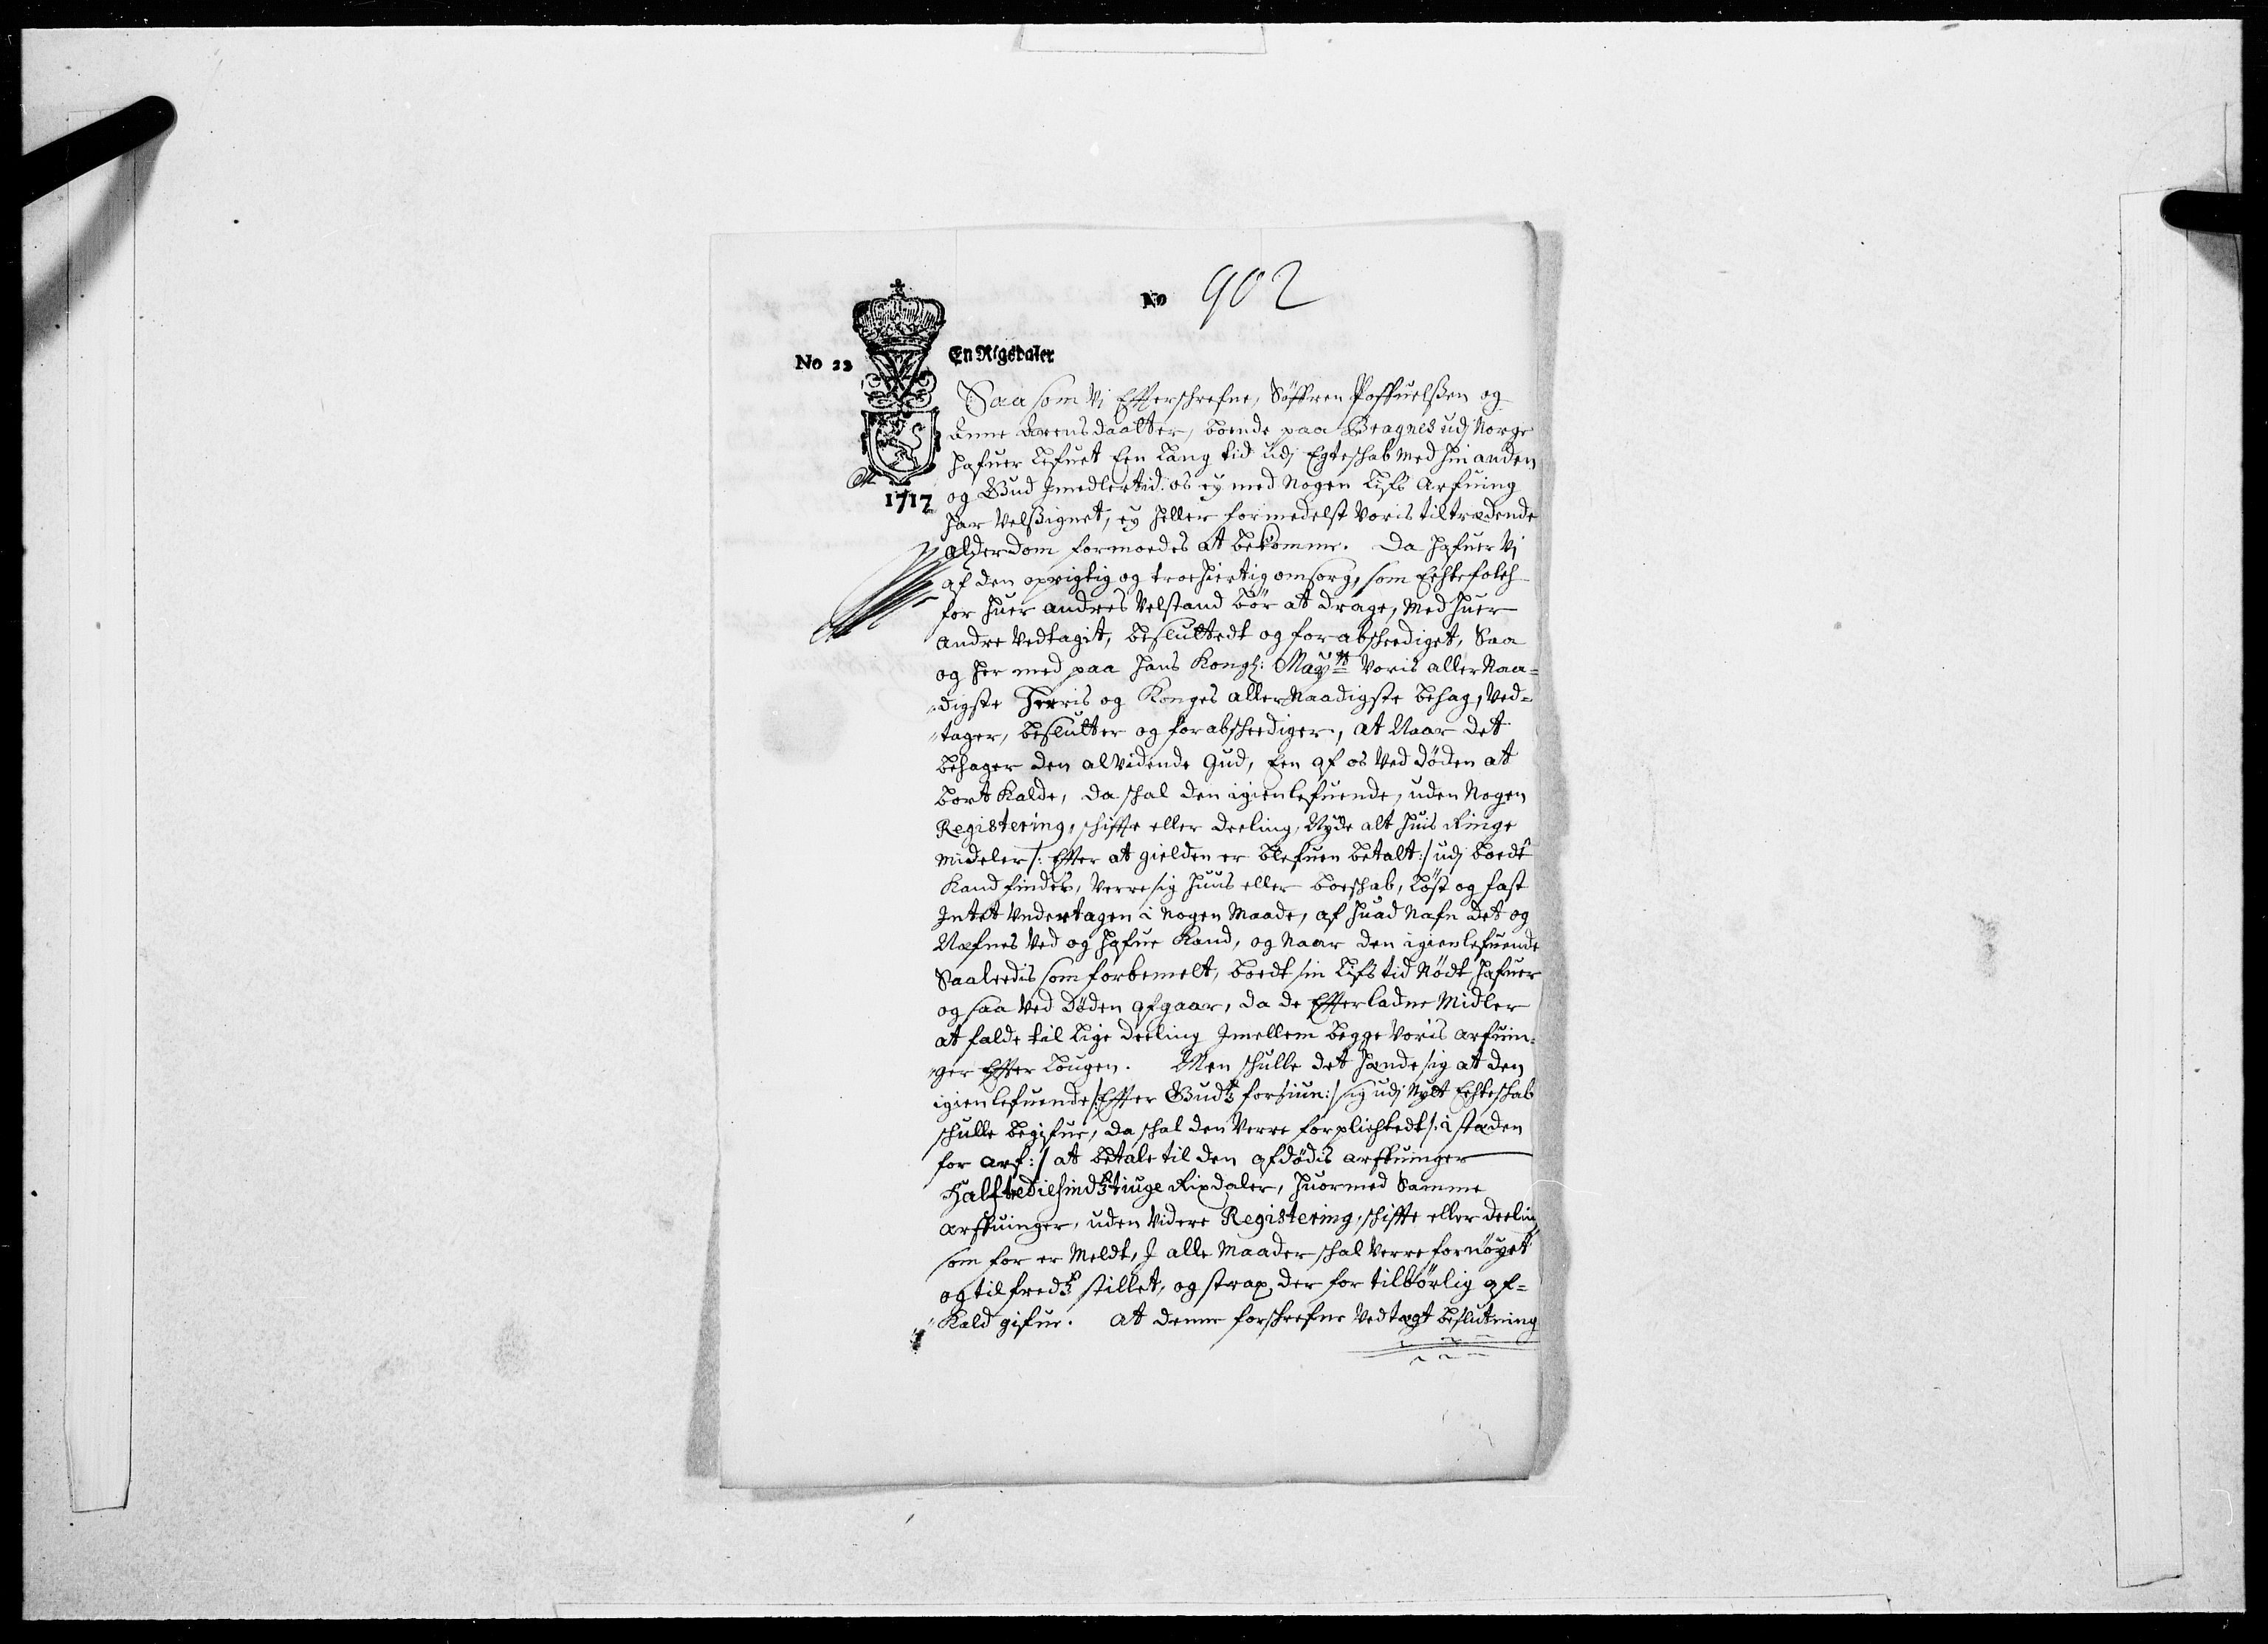 No 902
No 22
En Rigsdaler
1717
Saa som Vj Effterschrefne, Söffren Poffuelßen og
Enne Larensdaatter, boende paa Bragnes udj Norge
hafuer Lefuet Een Lang tid udj Egteschab med hin anden
og Gud Jmedlertid os ey med Nogen Lifs Arfuing
har Velßignet, ey heller formedelst Voris tiltrædende
alderdom formoedes at bekomme. Da hafuer Vj
af den oprigtig og troehiertig omsorg, som Echtefolch
for huer andres Velstand bör at drage, med huer
andre Vedtagit, besluttedt og forabscheediget, Saa
og her med paa Hans Kongl: Maytt Voris aller Naa=
digste Herris og Konges allerNaadigste behag, Ved=
tager, beslutter og forabscheediger, at Naar det
behager den alvidende Gud, Een af os Ved döden at
bort Kalde, da schal den igienlefuende, uden Nogen
Registering, schiffte eller deeling, Nyde alt huis Ringe
mideler /: Effter at gielden er blefuen betalt:/ udj boedt
Kand findes, Verre sig huus eller boeschab, Löst og fast
Jntet Undertagen i Nogen Maade, af huad Nafn det og
Næfnes Ved og hafue Kand, og Naar den igienlefuende
Saaleedis som forbemelt, boedt sin Lifs tid Nödt hafuer
og saa Ved Döden afgaar, da de Effterladne Midler
at falde til Lige deeling Jmellem begge Voris arfuin=
ger Effter Lougen. Men schulle det hænde sig at den
igienlefuende /:Effter Gudz forsiun:/ sig udj Nyt Echteschab
schulle begifue, da schal den Verre forplichtedt /: i stæden
for arf:/ at betale til den afdödis arffuinger
Halftrediesindztiuge Rixdaler, huormed Samme
arffuinger, uden Videre Registering, schiffte eller deeling
som for er Meldt, J alle Maader schal Verre fornöyet
og tilfredz stillet, og strax der for tilbörlig af=
Kald gifue. At denne forschrefne Vedtægt beslutning